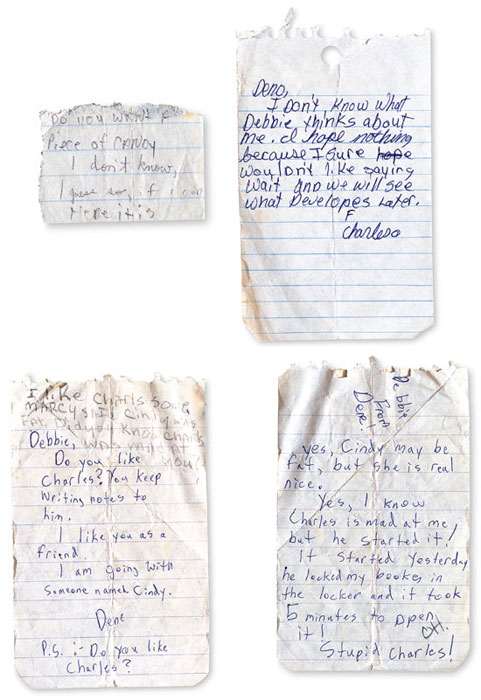 Do you want a
Piece of candy
I don't know,
I guess so, if I can
Here it is
Deno,
I Don't know what
Debbie thinks about
me. I hope nothing
because I sure hope
wouldn't like saying
wait and we will see
what Developes Later.
F
Charles
I like Charls some
MARCY said Cindy was
FAt. Did you know Charls
was mad at
you!
Debbie,
Do you like
Charles? You keep
writing notes to
him.
I like you as a
friend.
I am going with
someone named Cindy.
Dene
P.S. :- Do you like
Charles?
Debbie
From
Dene!
yes, Cindy may be
fat, but she is real
nice.
Yes, I know
Charles is mad at me,
but he started it!
It started yesterday
he locked my books in
the locker and it took
5 minutes to open
it!
OH.
Stupid Charles!